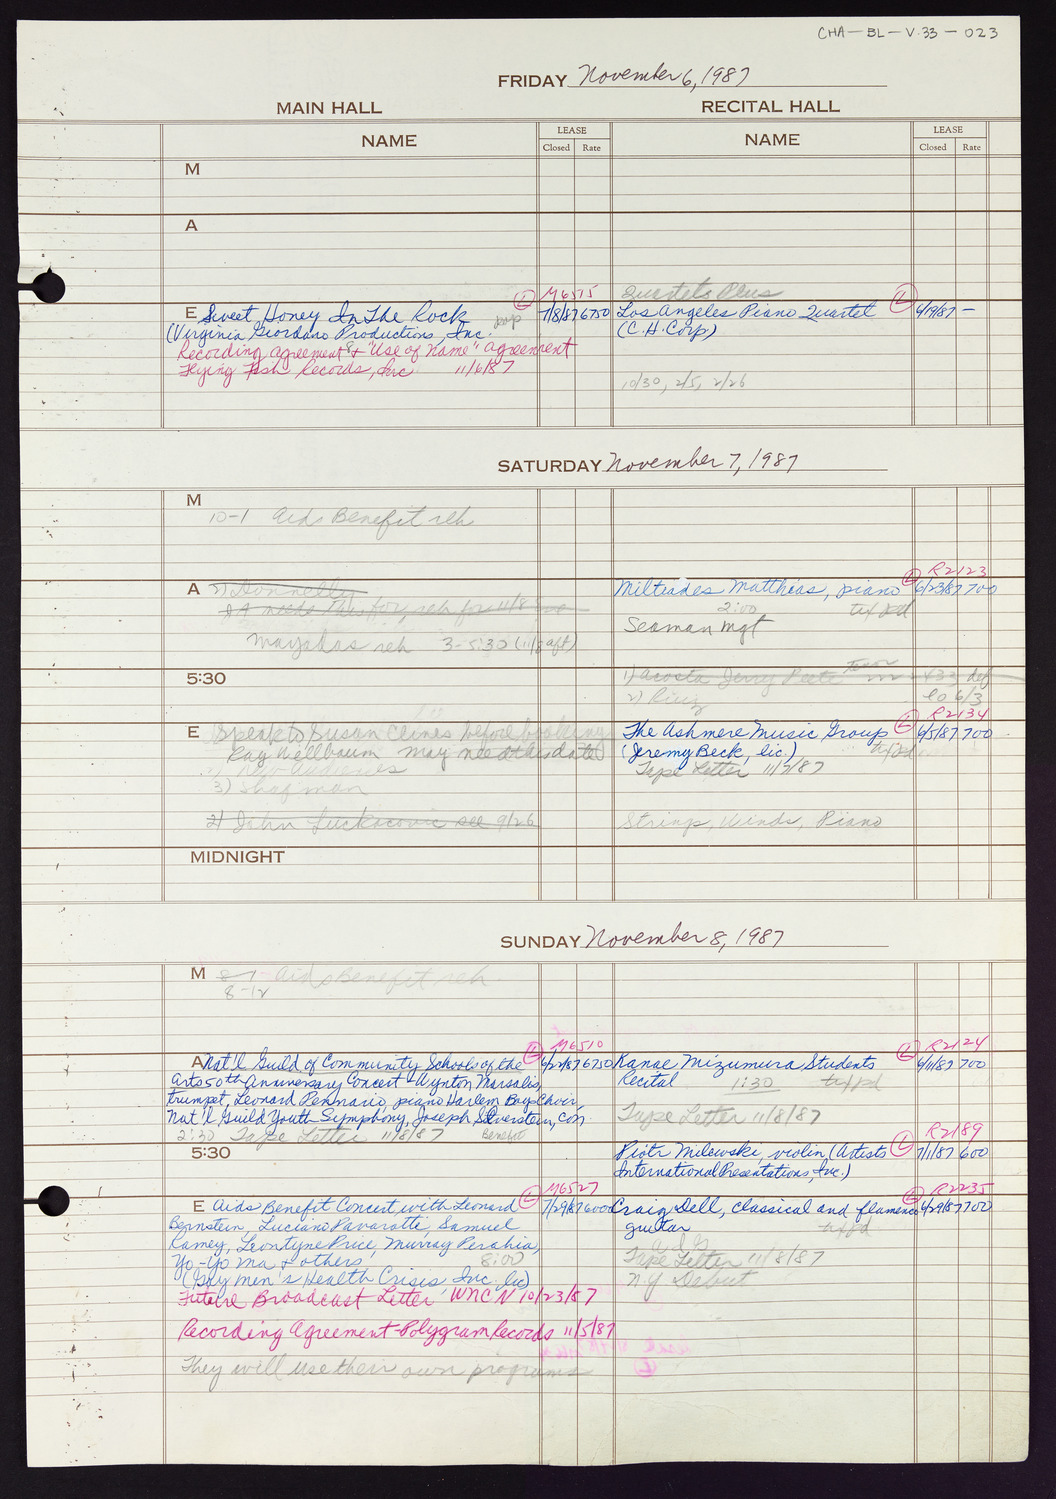 CHA-BL-V.33-023
FRIDAY November 6, 1987
MAIN HALL RECITAL HALL
NAME LEASE Closed Rate NAME LEASE Closed Rate
M
A
M6575 Quartets Plus
E Sweet Honey In The Rock pop L 7/8/87 6750 Los Angeles Piano Quartet L 6/19/87 —
(Virginia Giordano Productions, Inc. (C.H. Corp)
Recording agreement & "Use of Name" agreement
Flying Fish Records, Inc 11/6/87
10/30, 2/5, 2/26
SATURDAY November 7, 1987
M
10-1 Aids Benefit reh
R2123
A 2) Donnelly Miltiades Matthias, piano L 6/23/87 700
2:00 tix pd
Mayadas reh 3-5:30 (11/8 aft) Seaman Mgt
5:30 1) Acosta Jerry Peete
2) Ruiz
R2134
E Speak to Susan Clines before booking The Ashmere Music Group L 6/5/87 700
Ray Wellbaum may need this date (Jeremy Beck, lic.)
Tape Letter 11/7/87
3) Shafman
2) John see 9/26 Strings, Winds, Piano
MIDNIGHT
SUNDAY November 8, 1987
M 8-1 Aids Benefit reh
8-12
M6510 R2124
A Nat'l Guild of Community Schools of the L 6/22/87 6750 Kanae Mizumura Students L 6/11/87 700
Arts 50th Anniversary Concert Wynton Marsalis, Recital 1:30 tix pd
trumpet, Leonard Pennario, piano Harlem Boys Choir,
Nat'l Guild Youth Symphony, Joseph Silverstein, con. Tape Letter 11/8/87
2:30 Tape Letter 11/8/87 Benefit
R2189
5:30 Piotr Milewski, violin (Artists L 7/1/87 600
International Presentations, Inc.)
M6527 R2235
E Aids Benefit Concert with Leonard L 7/29/87 6000 Craig Dell, classical and flamenco L 9/29/87 700
Bernstein, Luciano Pavarotti, Samuel guitar tix pd
Ramey, Leontyne Price, Murray Perahia,
Yo-Yo Ma & others 8:00 Tape Letter 11/8/87
(Gay Men's Health Crisis, Inc. lic) NY Debut
Future Broadcast Letter WNCN 10/23/87
Recording Agreement Polygram Records 11/5/87
They will use their own programs